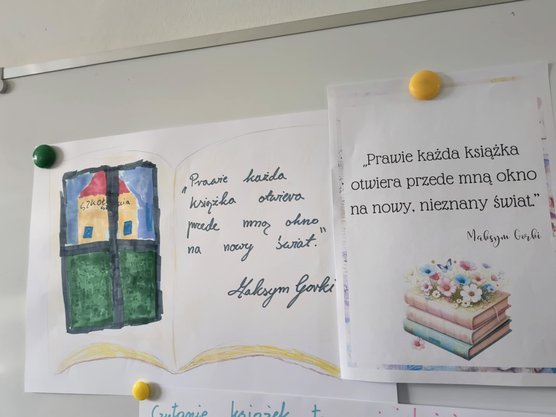 „Prawie każda
książka otwiera
przede mną okno
na nowy świat."
Maksym Gorki
„Prawie każda książka
otwiera przede mną okno
na nowy, nieznany świat."
Maksym Gorki
Czytanie książek